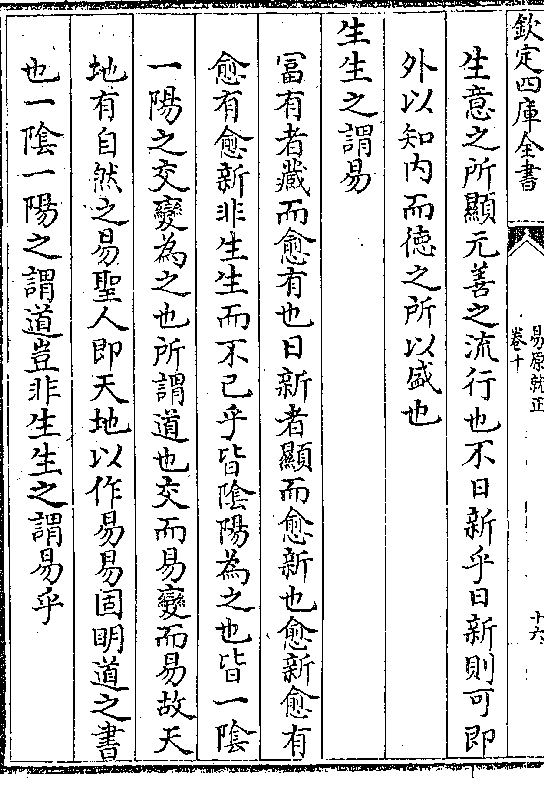 欽定四庫全書
易原就正
卷十
十六
生意之所顯元善之流行也不日新乎日新則可即
外以知内而德之所以盛也
生生之謂易
冨有者藏而愈有也日新者顯而愈新也愈新愈有
愈有愈新非生生而不已乎皆隂陽為之也皆一隂
一陽之交變為之也所謂道也交而易變而易故天
地有自然之易聖人即天地以作易易固明道之書
也一隂一陽之謂道豈非生生之謂易乎